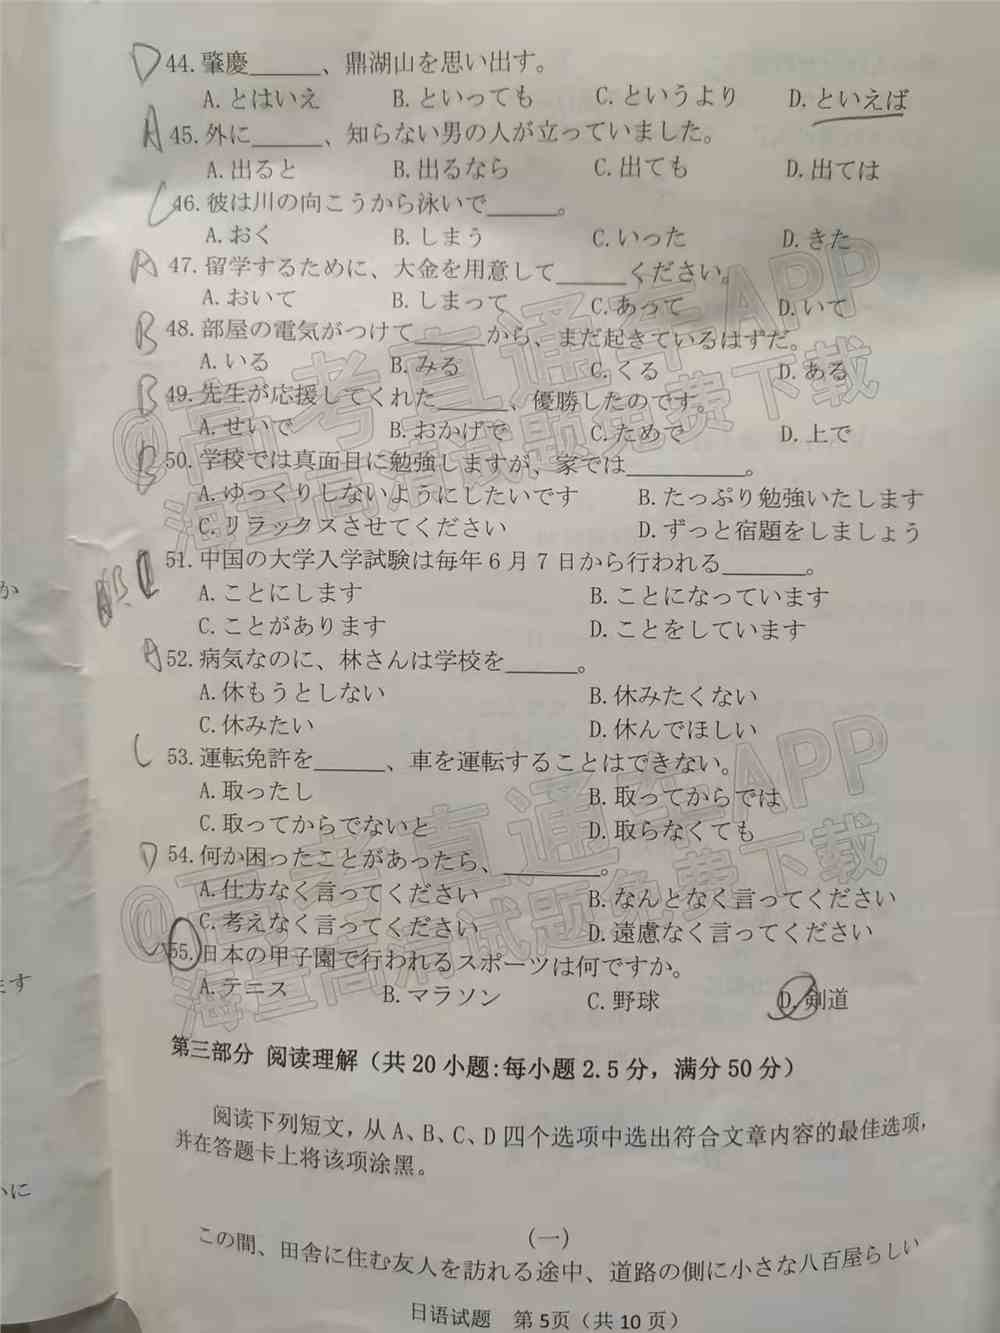 D 44. 肇慶______、鼎湖山を思い出す。
A. とはいえ B. といっても C. というより D. といえば
A 45. 外に______、知らない男の人が立っていました。
A. 出ると B. 出るなら C. 出ても D. 出ては
C 46. 彼は川の向こうから泳いで______。
A. おく B. しまう C. いった D. きた
A 47. 留学するために、大金を用意して______ください。
A. おいて B. しまって C. あって D. いて
B 48. 部屋の電気がつけて______から、まだ起きているはずだ。
A. いる B. みる C. くる D. ある
B 49. 先生が応援してくれた______、優勝したのです。
A. せいで B. おかげで C. ためで D. 上で
B 50. 学校では真面目に勉強しますが、家では__________。
A. ゆっくりしないようにしたいです B. たっぷり勉強いたします
C. リラックスさせてください D. ずっと宿題をしましょう
B 51. 中国の大学入学試験は毎年6月7日から行われる_______。
A. ことにします B. ことになっています
C. ことがあります D. ことをしています
A 52. 病気なのに、林さんは学校を______。
A. 休もうとしない B. 休みたくない
C. 休みたい D. 休んでほしい
C 53. 運転免許を______、車を運転することはできない。
A. 取ったし B. 取ってからでは
C. 取ってからでないと D. 取らなくても
D 54. 何か困ったことがあったら、__________。
A. 仕方なく言ってください B. なんとなく言ってください
C. 考えなく言ってください D. 遠慮なく言ってください
55. 日本の甲子園で行われるスポーツは何ですか。
A. テニス B. マラソン C. 野球 D. 剣道
第三部分 阅读理解（共20小题:每小题2.5分，满分50分）
阅读下列短文，从A、B、C、D四个选项中选出符合文章内容的最佳选项，
并在答题卡上将该项涂黑。
（一）
この間、田舎に住む友人を訪れる途中、道路の側に小さな八百屋らしい
日语试题 第5页（共10页）
か
ます
いに
@高考直通车APP
海量高清试题免费下载
@高考直通车APP
海量高清试题免费下载